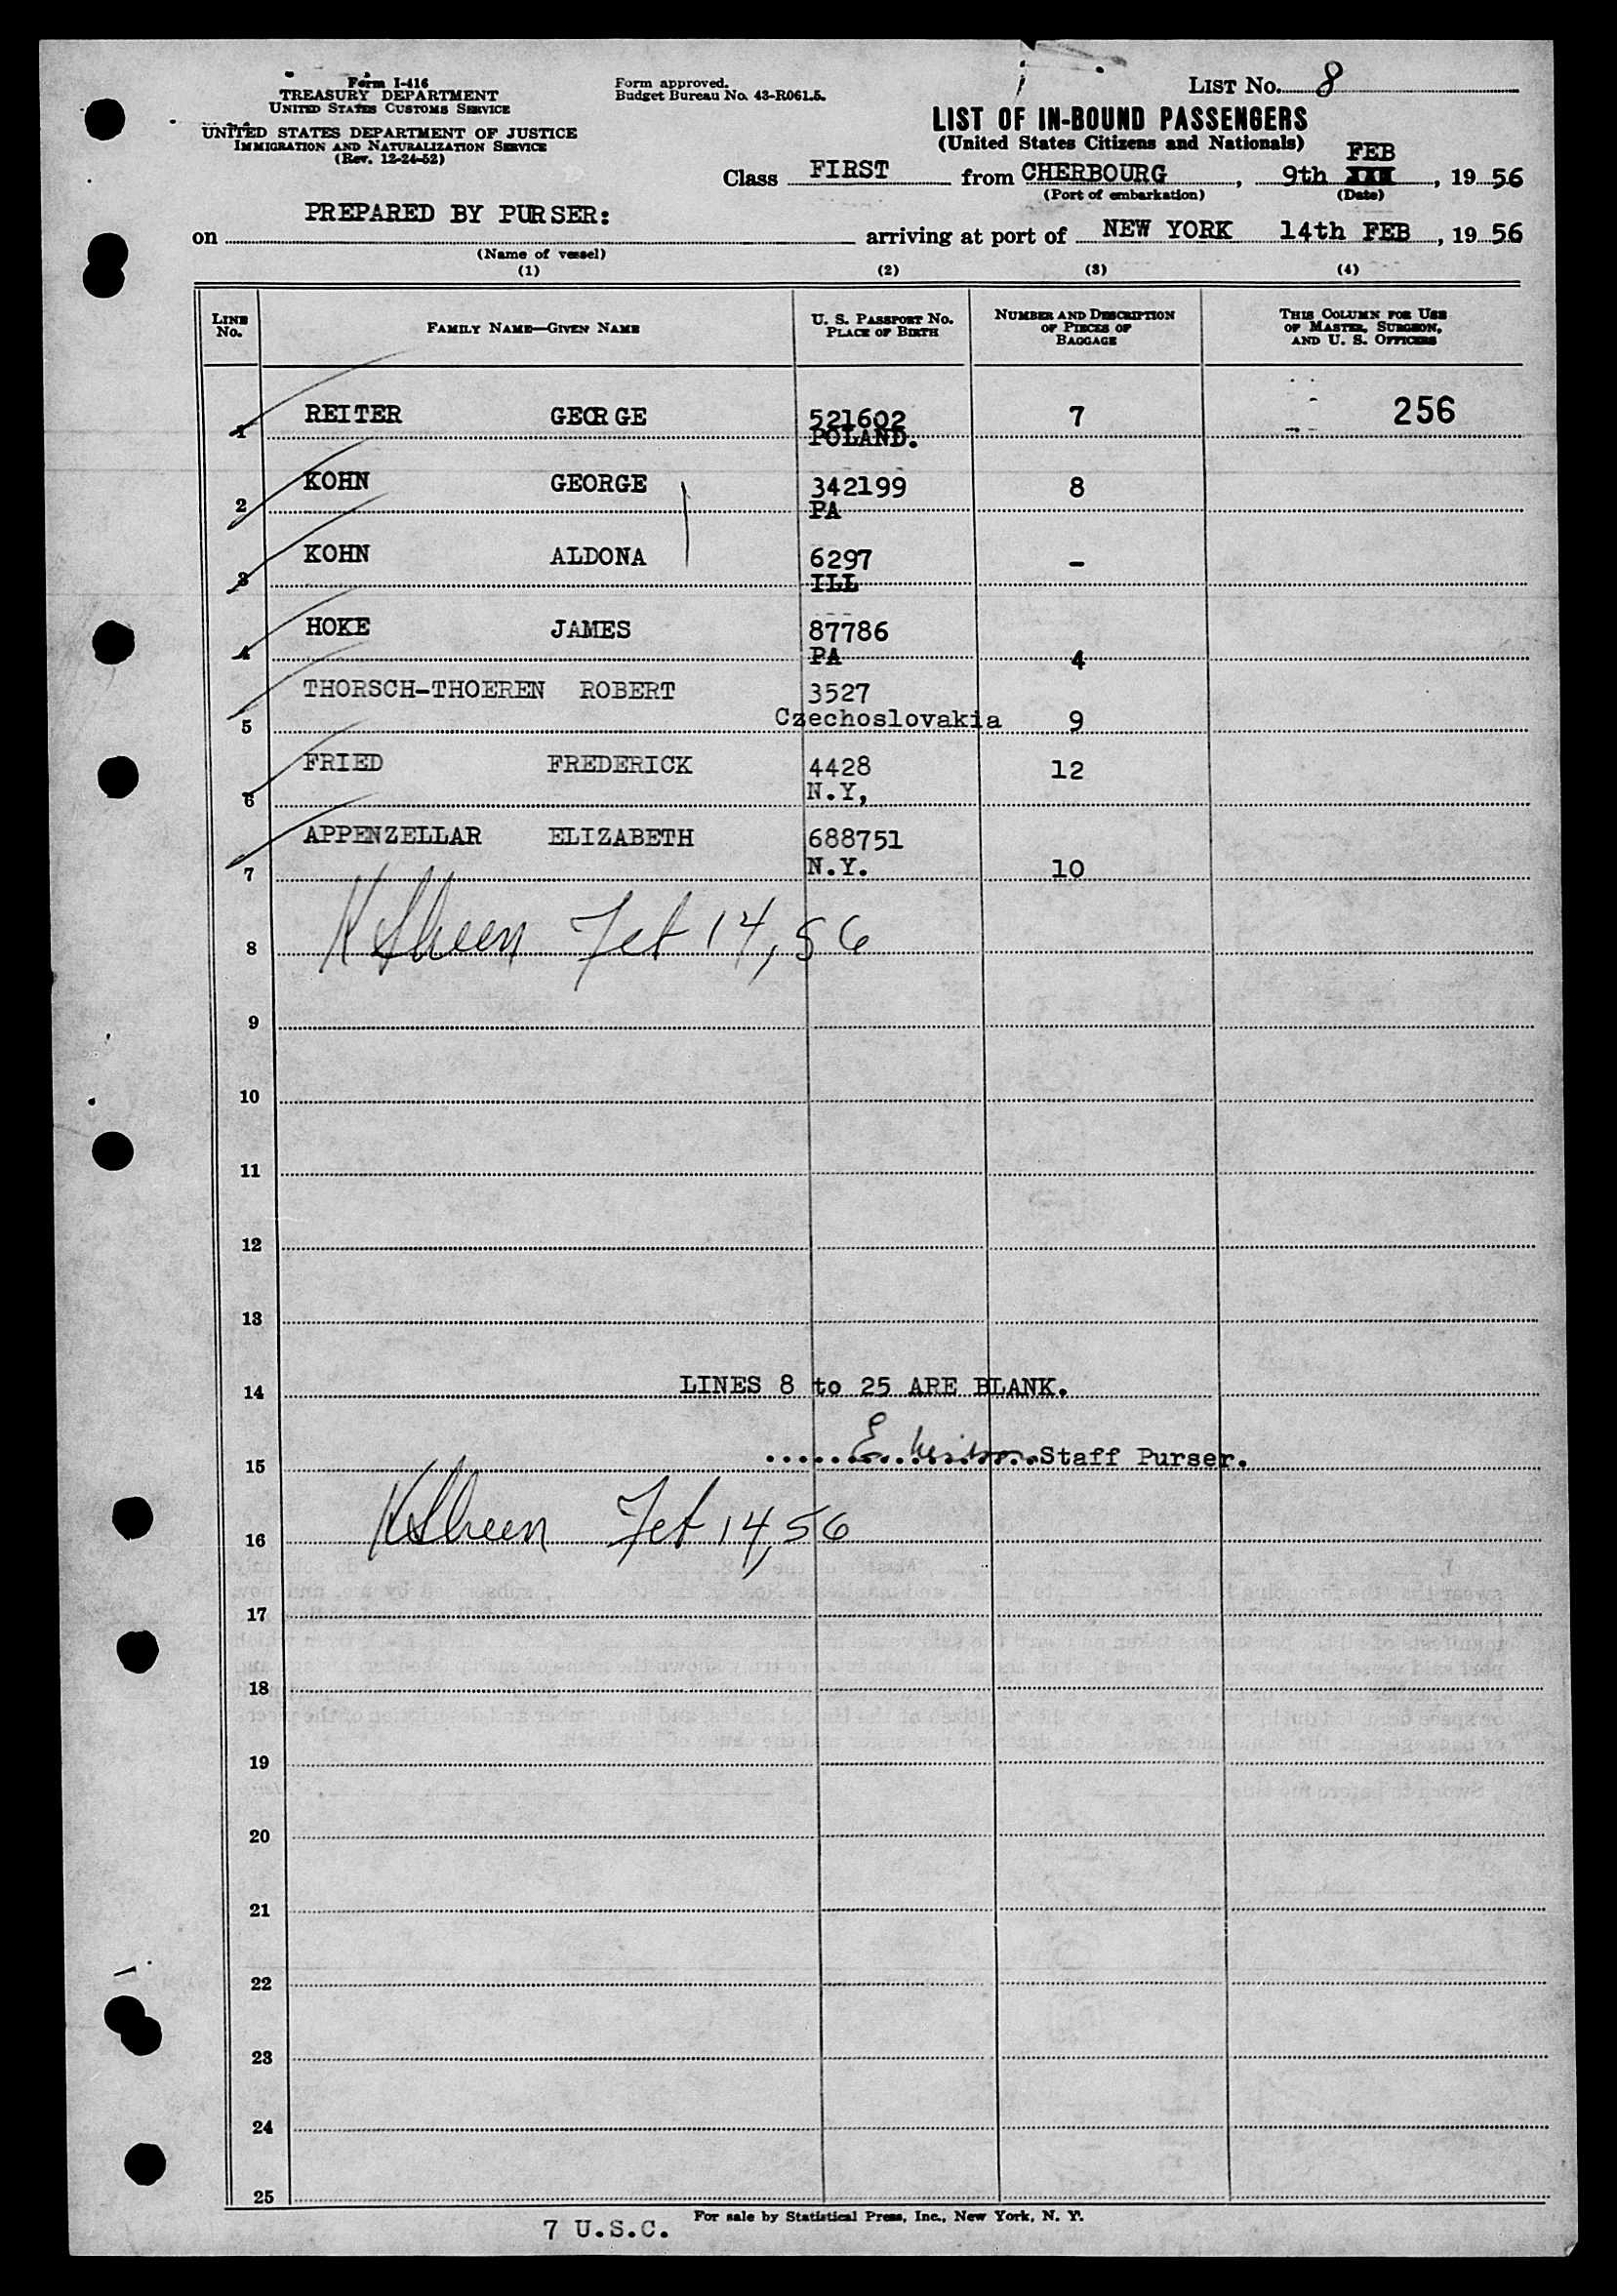 Form I-416
TREASURY DEPARTMENT
UNITED STATES CUSTOMS SERVICE
UNITED STATES DEPARTMENT OF JUSTICE
IMMIGRATION AND NATURALIZATION SERVICE
(Rev. 12-24-52)
Form approved.
Budget Bureau No. 43-R061.5.
LIST NO. 8
LIST OF IN-BOUND PASSENGERS
(United States Citizens and Nationals)
FEB
Class FIRST from CHERBOURG, 9th, 19 56
(Port of embarkation) (Date)
PREPARED BY PURSER:
on arriving at port of NEW YORK 14th FEB, 19 56
(Name of vessel)
(1) (2) (3) (4)
LINE NO. FAMILY NAME—GIVEN NAME U. S. PASSPORT NO. PLACE OF BIRTH NUMBER AND DESCRIPTION OF PIECES OF BAGGAGE THIS COLUMN FOR USE OF MASTER, SURGEON, AND U. S. OFFICERS
1 REITER GEORGE 521602 7 256
POLAND.
2 KOHN GEORGE 342199 8
PA
3 KOHN ALDONA 6297 -
ILL
4 HOKE JAMES 87786
PA 4
THORSCH-THOEREN ROBERT 3527
5 Czechoslovakia 9
FRIED FREDERICK 4428 12
6 N.Y,
APPENZELLAR ELIZABETH 688751
7 N.Y. 10
8 K Sheen Feb 14, 56
9
10
11
12
13
14 LINES 8 to 25 ARE BLANK.
15 E. Staff Purser.
16 K Sheen Feb 14, 56
17
18
19
20
21
22
23
24
25
For sale by Statistical Press, Inc., New York, N. Y.
7 U.S.C.